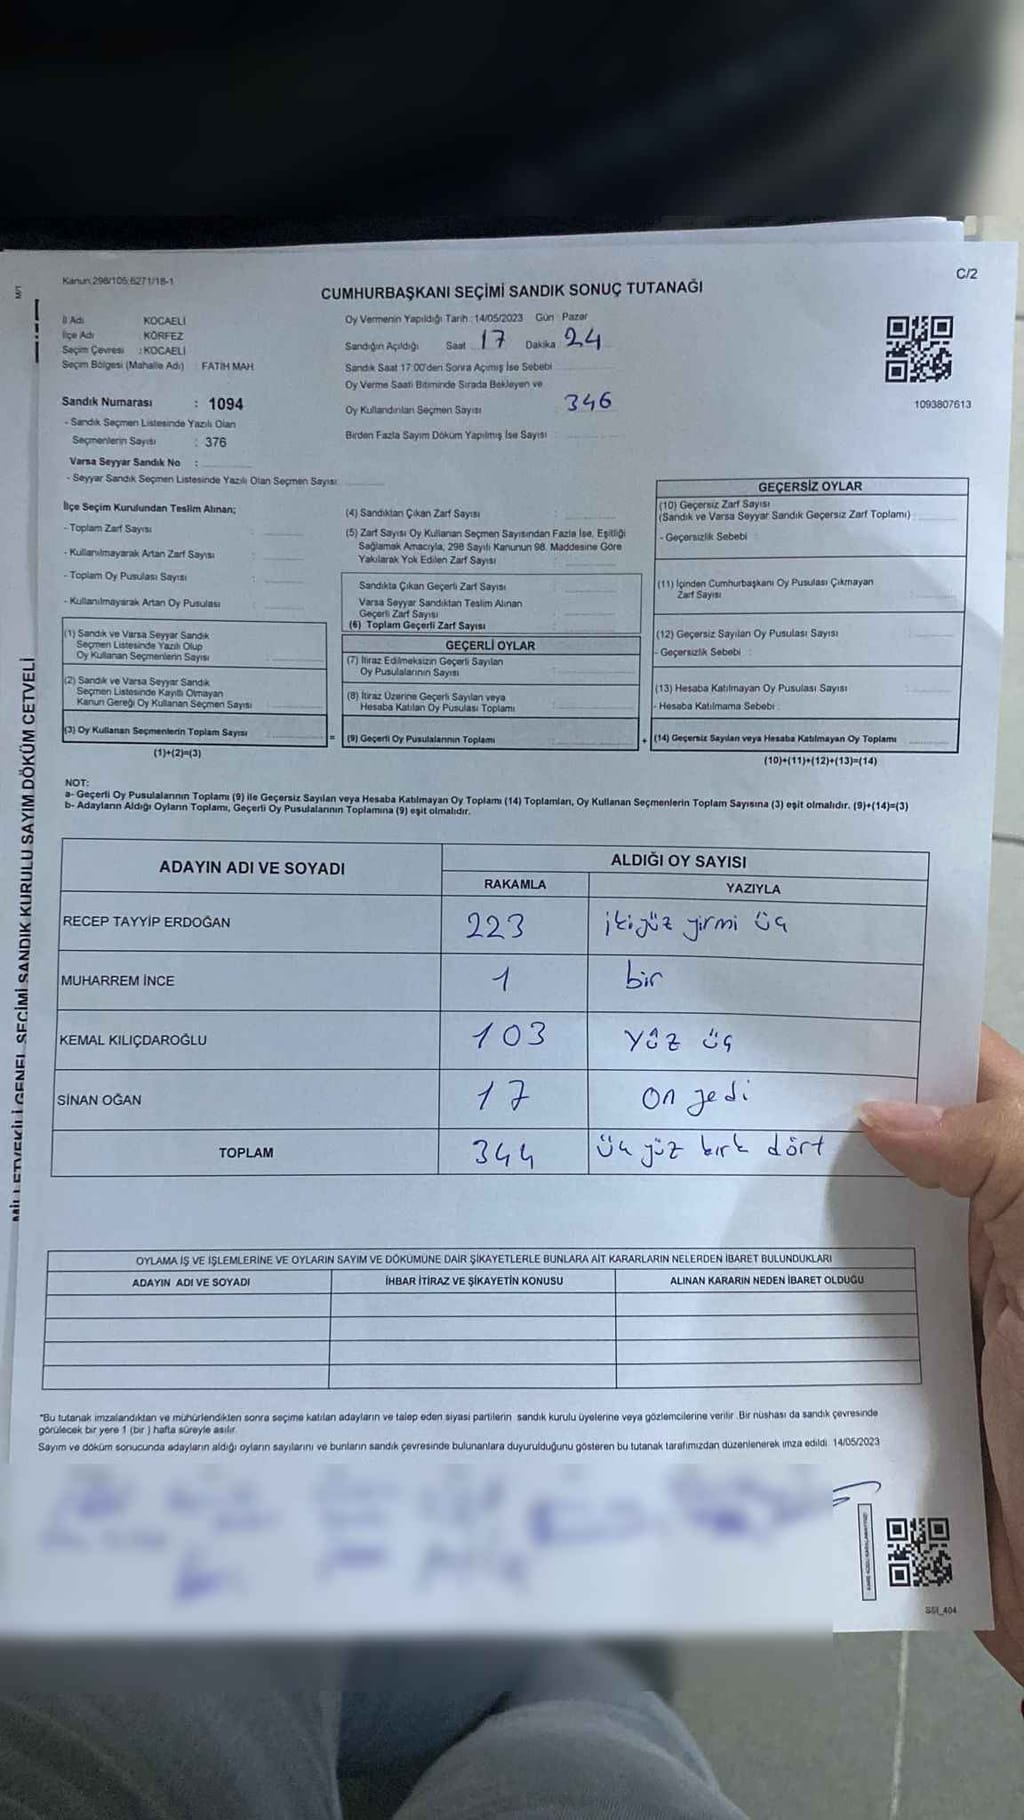 Kanun:298/105;6271/18-1
C/2
CUMHURBAŞKANI SEÇİMİ SANDIK SONUÇ TUTANAĞI
İl Adı KOCAELİ
İlçe Adı : KÖRFEZ
Seçim Çevresi : KOCAELİ
Seçim Bölgesi (Mahalle Adı) : FATİH MAH
Sandık Numarası : 1094
- Sandık Seçmen Listesinde Yazılı Olan
Seçmenlerin Sayısı : 376
Varsa Seyyar Sandık No :
- Seyyar Sandık Seçmen Listesinde Yazılı Olan Seçmen Sayısı:
Oy Vermenin Yapıldığı Tarih : 14/05/2023 Gün : Pazar
Sandığın Açıldığı Saat 17 Dakika 24
Sandık Saat 17:00'den Sonra Açımış İse Sebebi
Oy Verme Saati Bitiminde Sırada Bekleyen ve
Oy Kullandırılan Seçmen Sayısı 346
Birden Fazla Sayım Döküm Yapılmış İse Sayısı :
1093807613
İlçe Seçim Kurulundan Teslim Alınan;
- Toplam Zarf Sayısı :
- Kullanılmayarak Artan Zarf Sayısı :
- Toplam Oy Pusulası Sayısı :
- Kullanılmayarak Artan Oy Pusulası :
(1) Sandık ve Varsa Seyyar Sandık
Seçmen Listesinde Yazılı Olup
Oy Kullanan Seçmenlerin Sayısı
(2) Sandık ve Varsa Seyyar Sandık
Seçmen Listesinde Kayıtlı Olmayan
Kanun Gereği Oy Kullanan Seçmen Sayısı
(3) Oy Kullanan Seçmenlerin Toplam Sayısı
(1)+(2)=(3)
=
(4) Sandıktan Çıkan Zarf Sayısı :
(5) Zarf Sayısı Oy Kullanan Seçmen Sayısından Fazla İse, Eşitliği
Sağlamak Amacıyla; 298 Sayılı Kanunun 98. Maddesine Göre
Yakılarak Yok Edilen Zarf Sayısı :
Sandıkta Çıkan Geçerli Zarf Sayısı
Varsa Seyyar Sandıktan Teslim Alınan
Geçerli Zarf Sayısı
(6) Toplam Geçerli Zarf Sayısı
GEÇERLİ OYLAR
(7) İtiraz Edilmeksizin Geçerli Sayılan
Oy Pusulalarının Sayısı
(8) İtiraz Üzerine Geçerli Sayılan veya
Hesaba Katılan Oy Pusulası Toplamı
(9) Geçerli Oy Pusulalarının Toplamı
+
GEÇERSİZ OYLAR
(10) Geçersiz Zarf Sayısı
(Sandık ve Varsa Seyyar Sandık Geçersiz Zarf Toplamı)
- Geçersizlik Sebebi :
(11) İçinden Cumhurbaşkanı Oy Pusulası Çıkmayan
Zarf Sayısı
(12) Geçersiz Sayılan Oy Pusulası Sayısı
- Geçersizlik Sebebi :
(13) Hesaba Katılmayan Oy Pusulası Sayısı
- Hesaba Katılmama Sebebi :
(14) Geçersiz Sayılan veya Hesaba Katılmayan Oy Toplamı
(10)+(11)+(12)+(13)=(14)
NOT:
a- Geçerli Oy Pusulalarının Toplamı (9) ile Geçersiz Sayılan veya Hesaba Katılmayan Oy Toplamı (14) Toplamları, Oy Kullanan Seçmenlerin Toplam Sayısına (3) eşit olmalıdır. (9)+(14)=(3)
b- Adayların Aldığı Oyların Toplamı, Geçerli Oy Pusulalarının Toplamına (9) eşit olmalıdır.
ADAYIN ADI VE SOYADI
ALDIĞI OY SAYISI
RAKAMLA YAZIYLA
RECEP TAYYİP ERDOĞAN 223 ikiyüz yirmi üç
MUHARREM İNCE 1 bir
KEMAL KILIÇDAROĞLU 103 yüz üç
SİNAN OĞAN 17 on yedi
TOPLAM 344 üç yüz kırk dört
OYLAMA İŞ VE İŞLEMLERİNE VE OYLARIN SAYIM VE DÖKÜMÜNE DAİR ŞİKAYETLERLE BUNLARA AİT KARARLARIN NELERDEN İBARET BULUNDUKLARI
ADAYIN ADI VE SOYADI İHBAR İTİRAZ VE ŞİKAYETİN KONUSU ALINAN KARARIN NEDEN İBARET OLDUĞU
"Bu tutanak imzalandıktan ve mühürlendikten sonra seçime katılan adayların ve talep eden siyasi partilerin sandık kurulu üyelerine veya gözlemcilerine verilir. Bir nüshası da sandık çevresinde
görülecek bir yere 1 (bir ) hafta süreyle asılır.
Sayım ve döküm sonucunda adayların aldığı oyların sayılarını ve bunların sandık çevresinde bulunanlara duyurulduğunu gösteren bu tutanak tarafımızdan düzenlenerek imza edildi. 14/05/2023
SSI_404
MİLLETVEKİLİ GENEL SEÇİMİ SANDIK KURULU SAYIM DÖKÜM CETVELİ